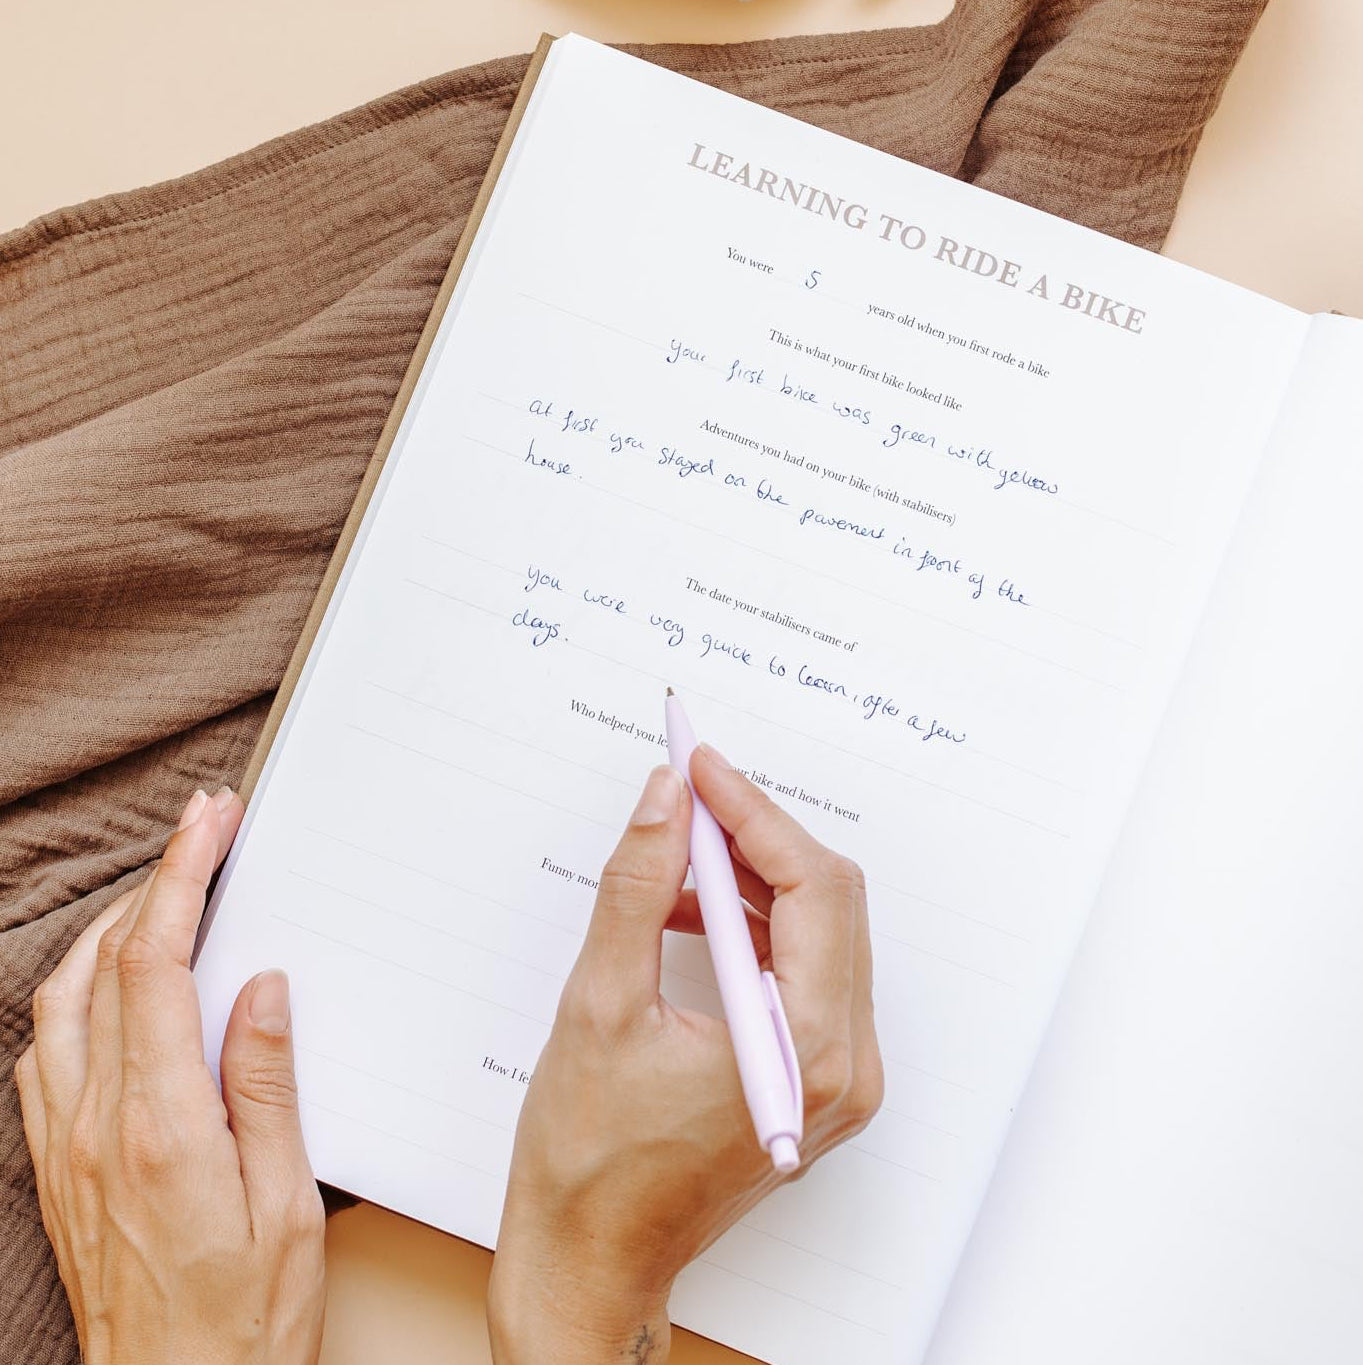 LEARNING TO RIDE A BIKE
You were 5 years old when you first rode a bike
This is what your first bike looked like
your first bike was green with yellow
Adventures you had on your bike (with stabilisers)
at first you stayed on the pavement in front of the
house.
The date your stabilisers came of
you were very quick to learn, after a few
days.
Who helped you bike and how it went
Funny
How I